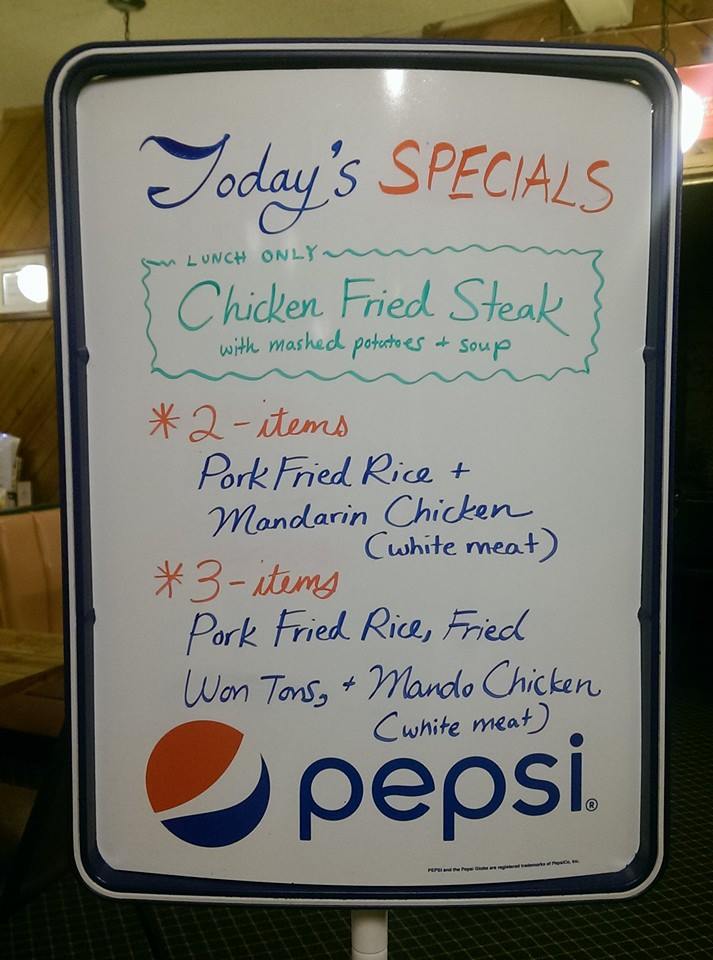 Today's SPECIALS
LUNCH ONLY
Chicken Fried Steak
with mashed potatoes + soup
* 2-items
Pork Fried Rice +
Mandarin Chicken
(white meat)
* 3-items
Pork Fried Rice, Fried
Won Tons, + Mando Chicken
(white meat)
pepsi®
PEPSI and the Pepsi Globe are registered trademarks of PepsiCo, Inc.